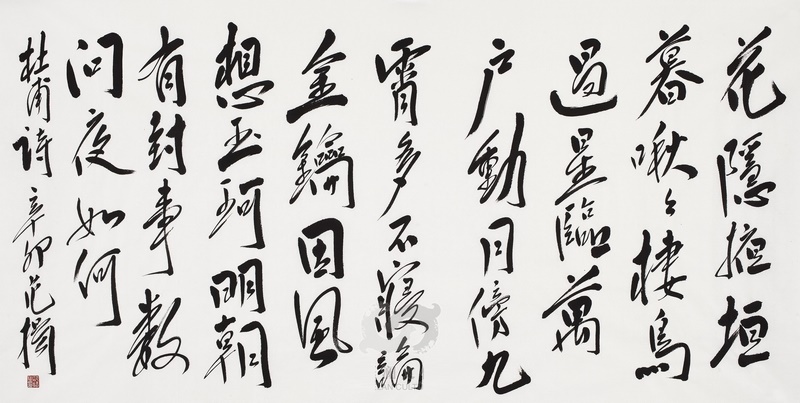 花隱掖垣
暮啾々棲鳥
過星臨萬
户動月傍九
霄多不寢
金鑰因風
想玉珂明朝
有封事数
问夜如何
杜甫诗 辛卯范